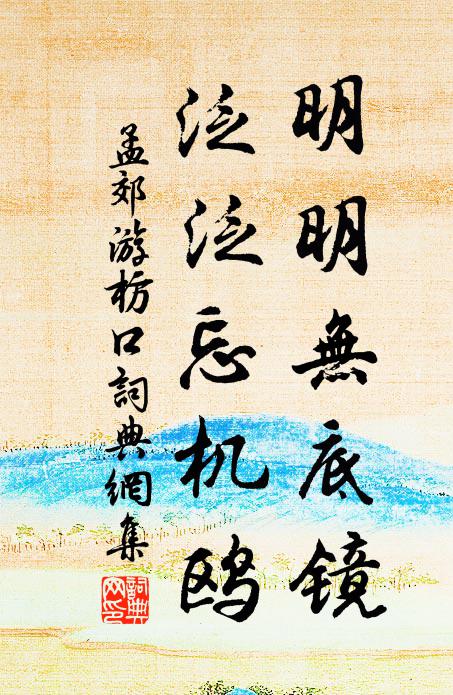 明明無底镜
泛泛忘机鸥
孟郊游枋口詞典網集
詞典